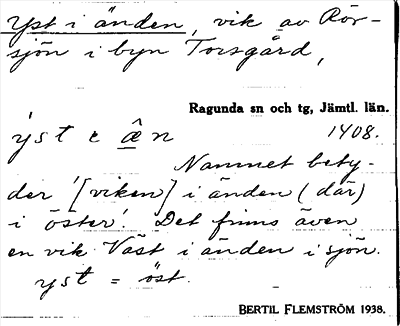 Yst i änden, vik av Rör-
sjön i byn Torsgård,
Ragunda sn och tg, Jämtl. län.
ýst e ân 1408.
Namnet bety-
der '[viken] i änden (där)
i öster'. Det finns även
en vik Väst i änden i sjön.
yst = öst.
BERTIL FLEMSTRÖM 1938.